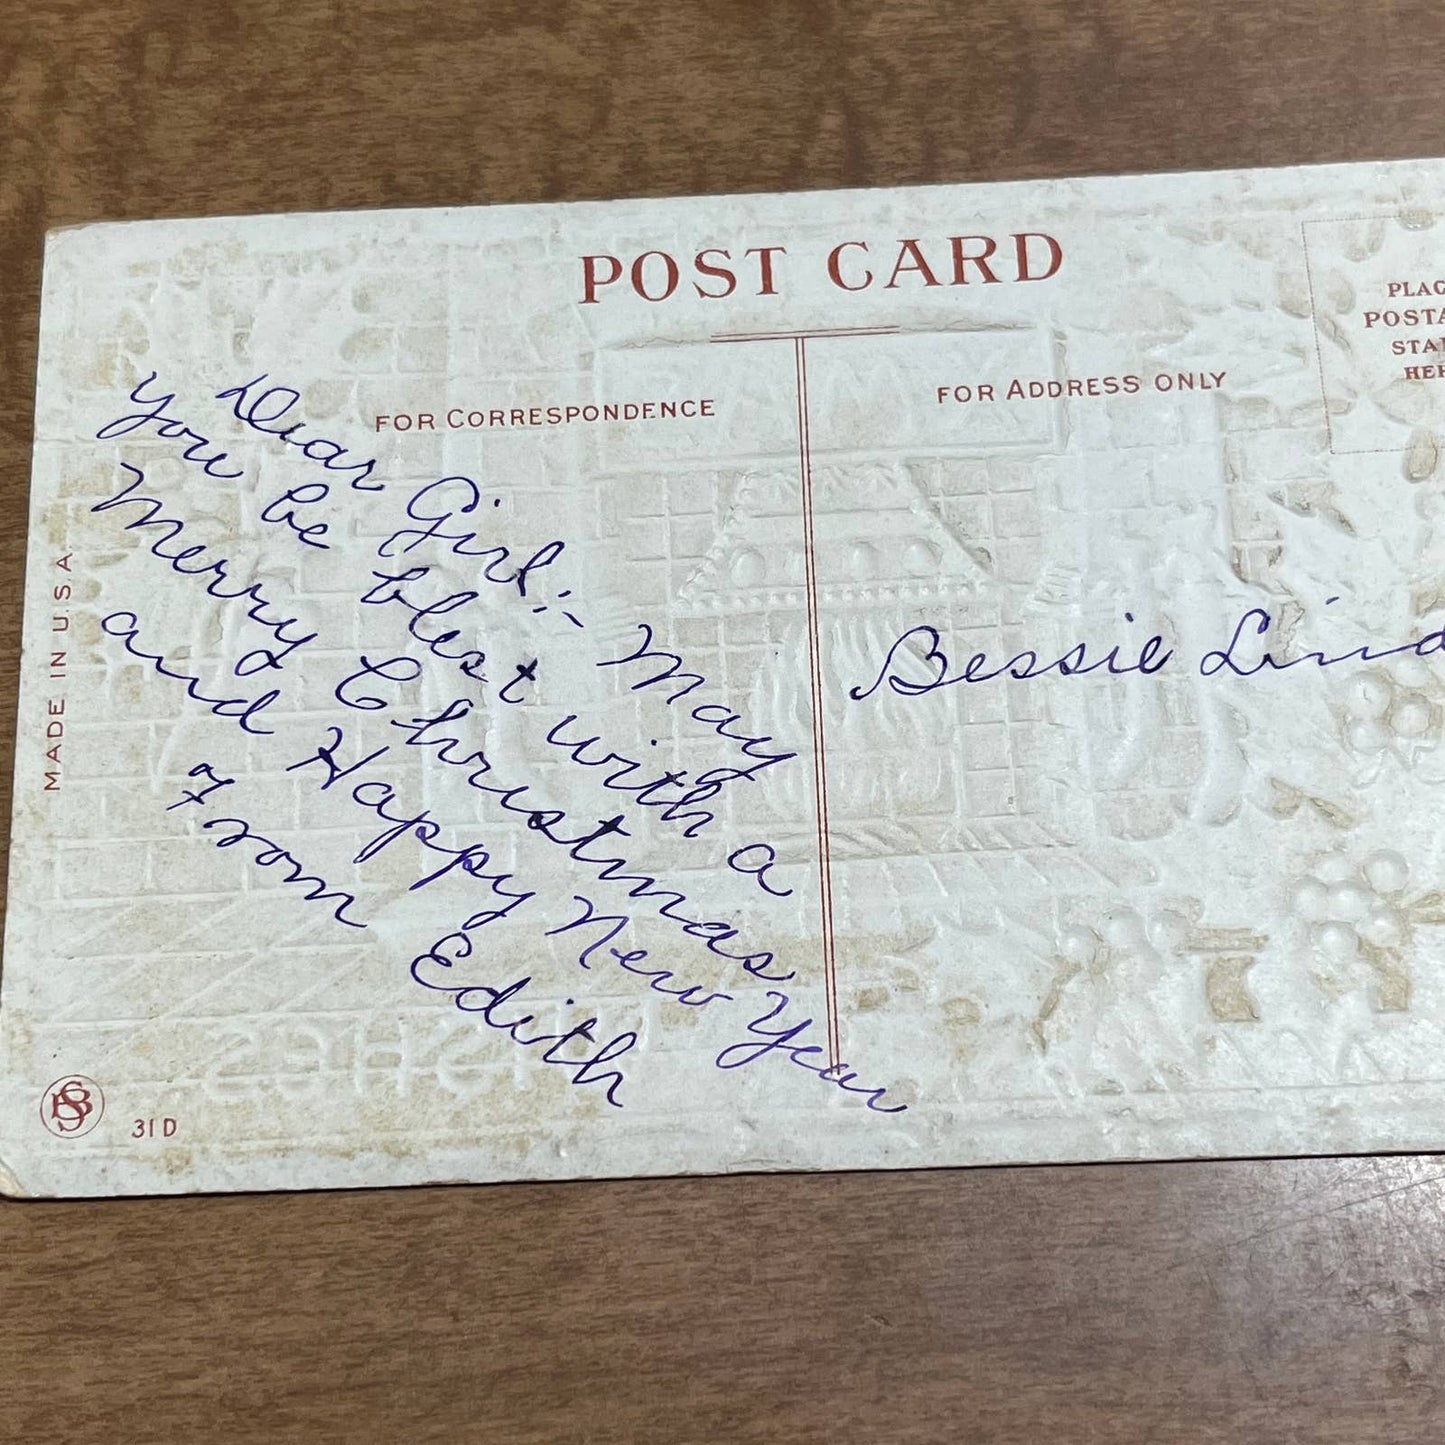 POST CARD
FOR CORRESPONDENCE
FOR ADDRESS ONLY
PLAC
POSTA
STA
HER
MADE IN U.S.A
Dear Girl:- May
you be blest with a
Merry Christmas
and Happy New Year
From Edith
Bessie Lind
BS
31D